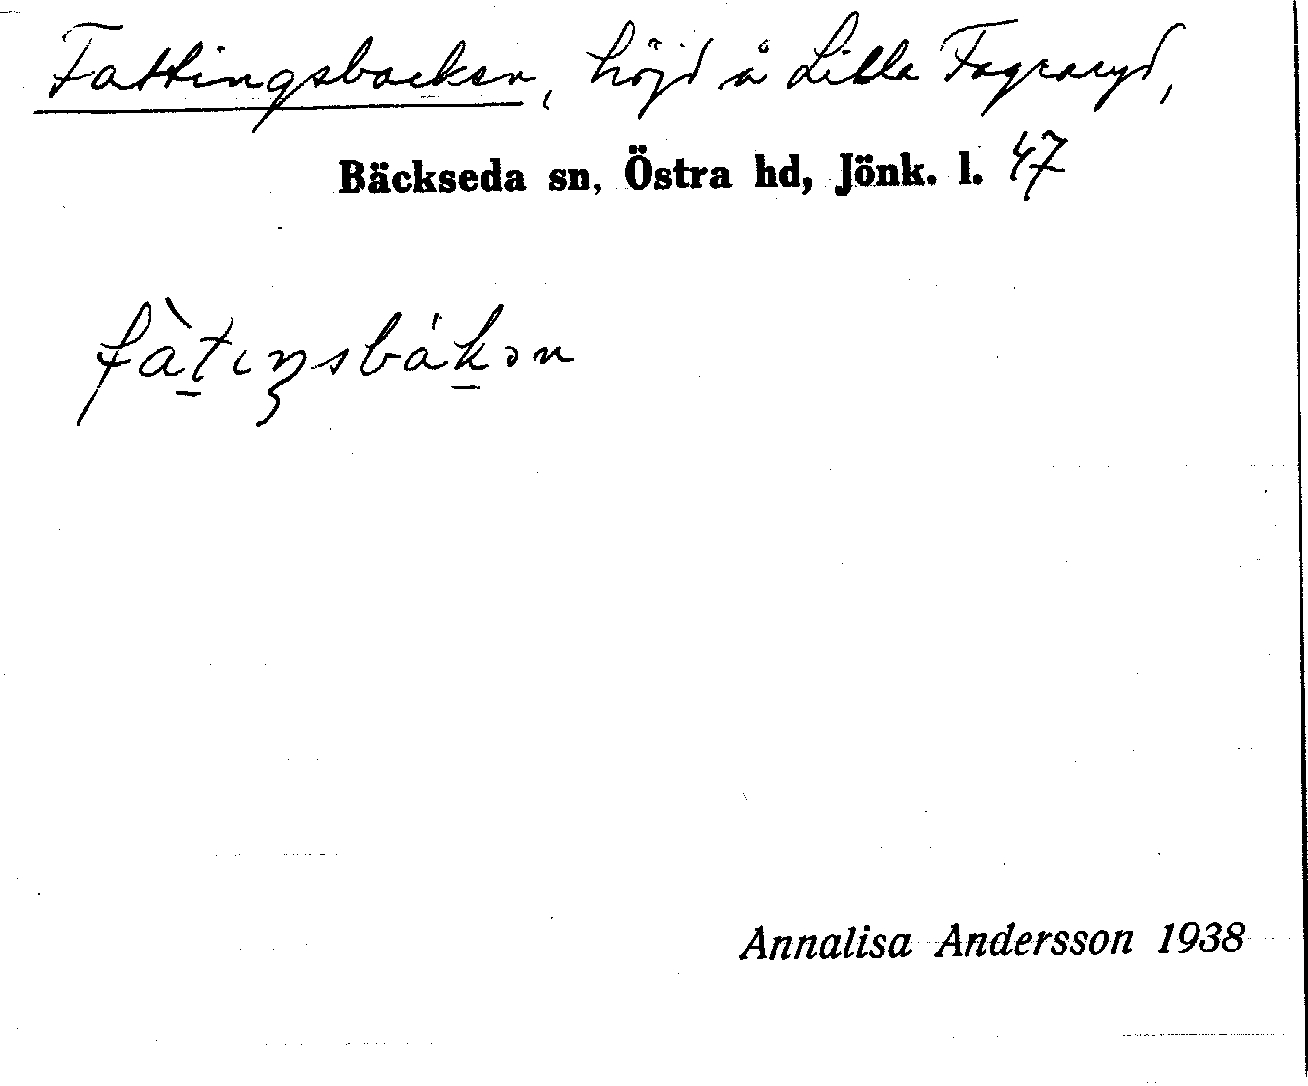 Fattingsbacken, höjd å Lilla Fagraryd,
Bäckseda sn, Östra hd, Jönk. l. 47
fàt̠ıŋsbák̠ən
Annalisa Andersson 1938